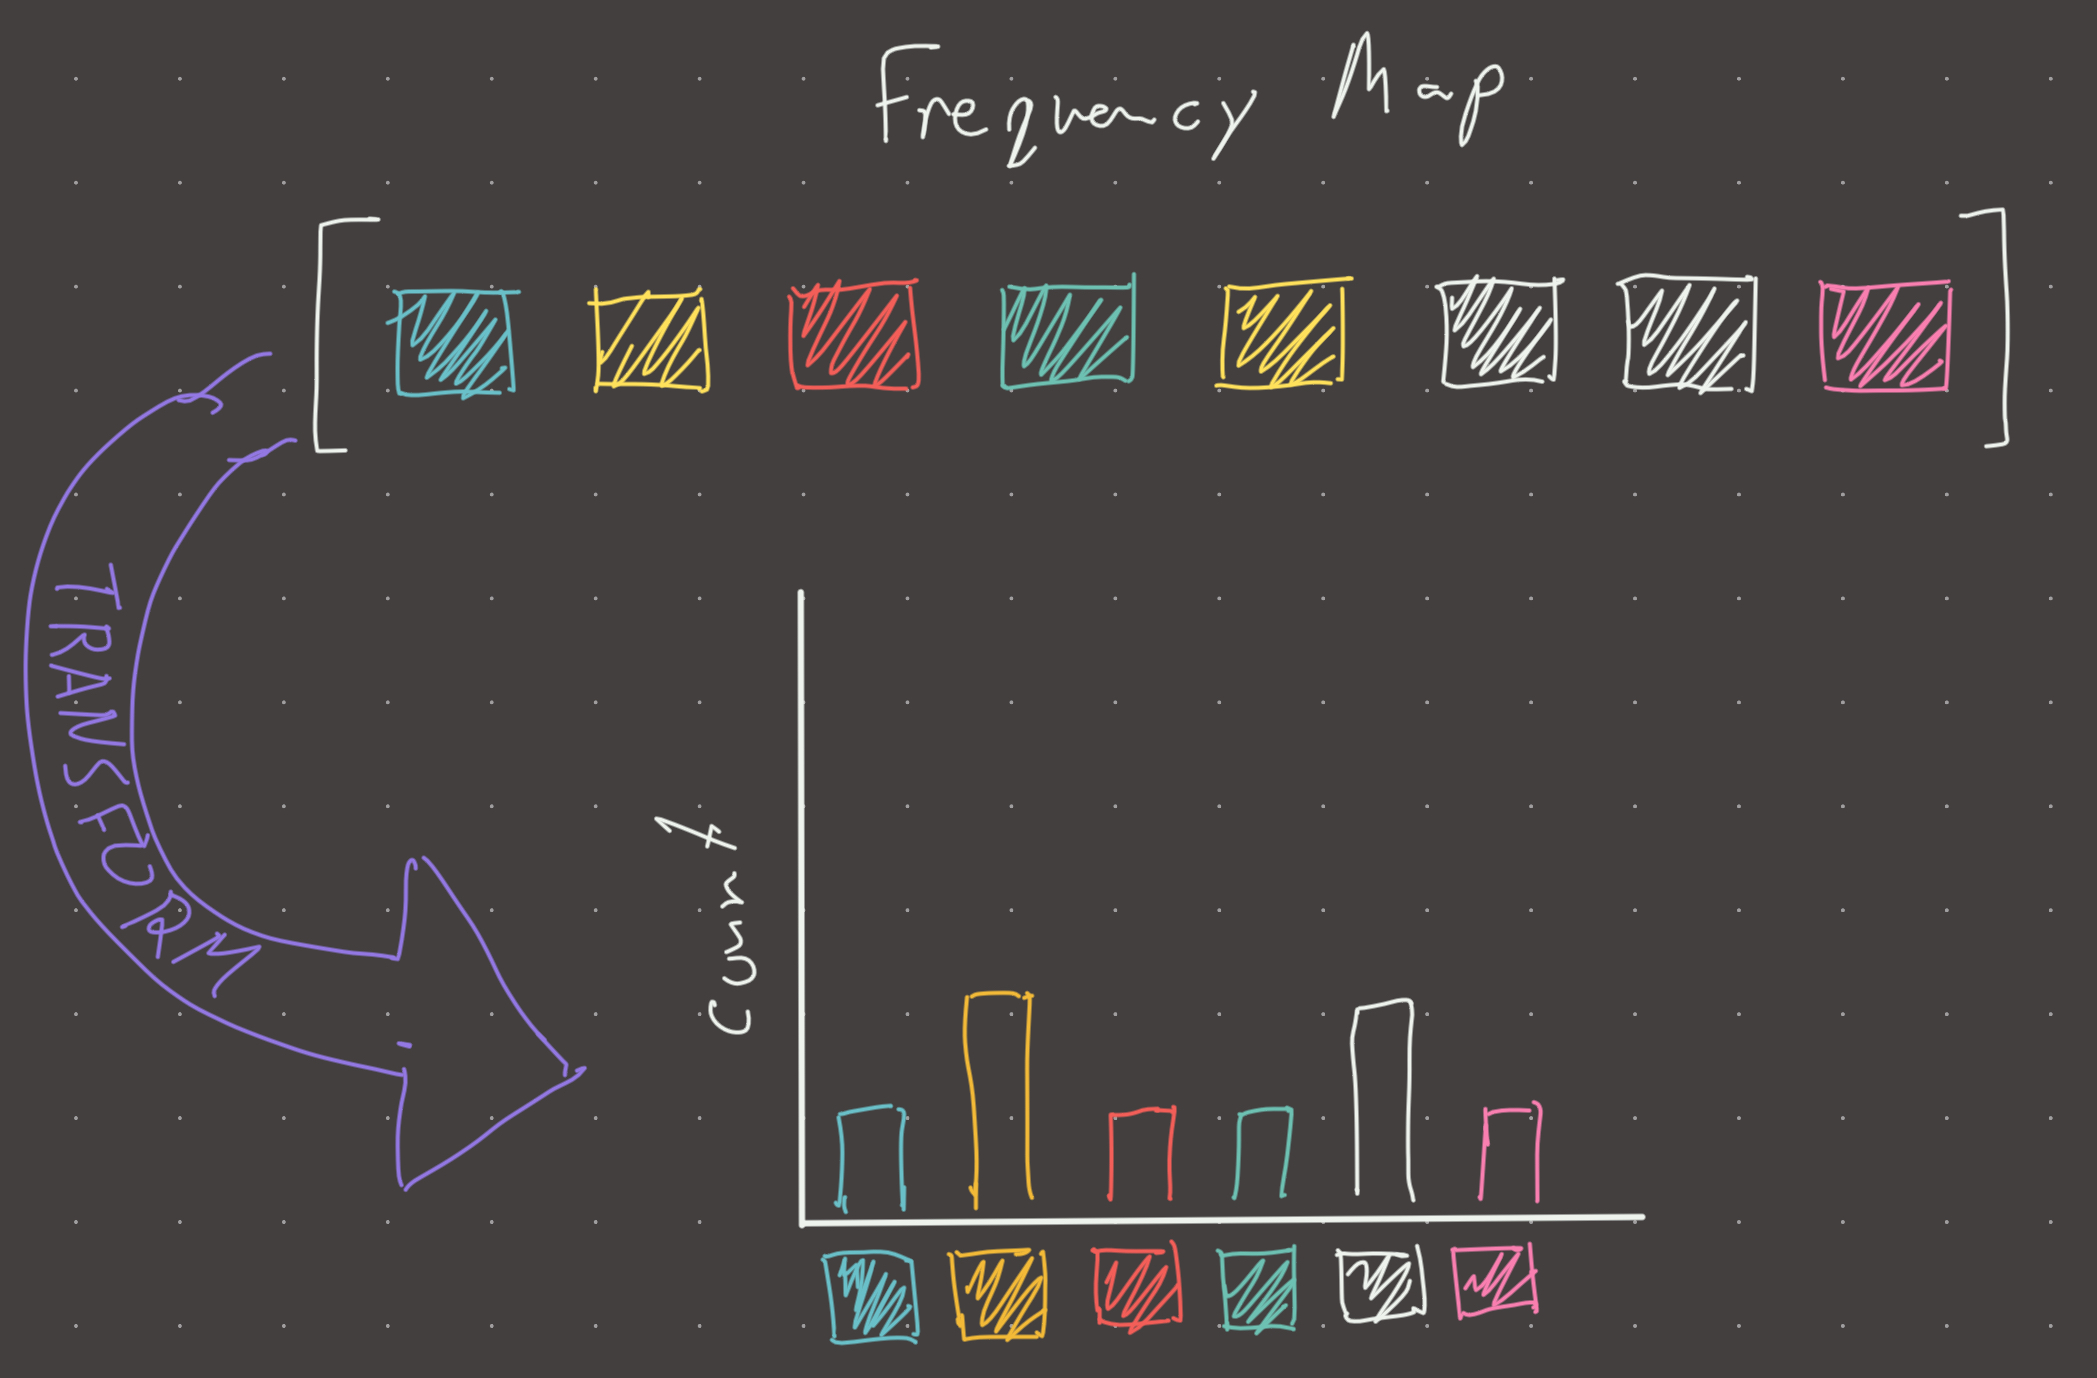 Frequency Map
TRANSFORM
Count